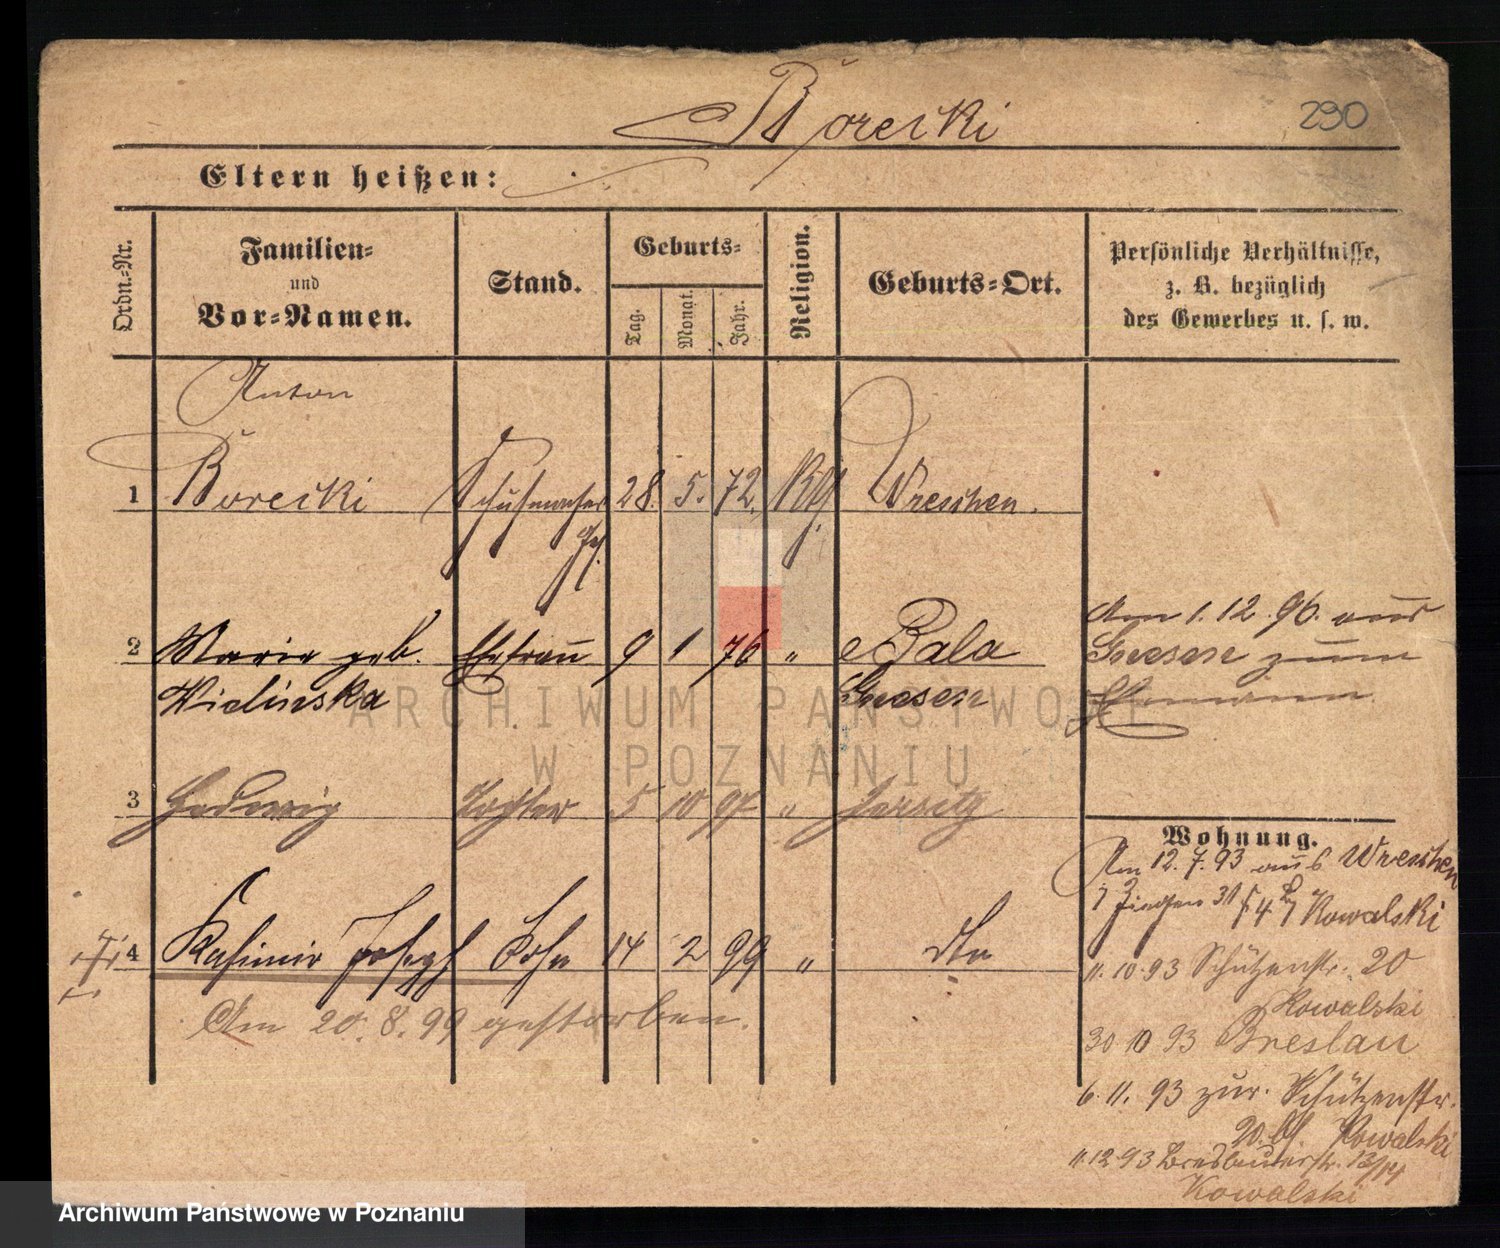 Borecki
290
Eltern heißen:
Ordn.-Nr.
Familien-
und
Vor-Namen.
Stand.
Geburts-
Tag.
Monat.
Jahr.
Religion.
Geburts-Ort.
Persönliche Verhältnisse,
z. B. bezüglich
des Gewerbes u. s. w.
Anton
1 Borecki Schuhmacher 28. 5. 72. Wreschen.
Ges.
2 Marie geb. Ehefrau 9 1 76 " Pala
Wielinska Gnesen
Am 1. 12. 96. aus
Gnesen zum
Ehemann
3 Hedwig Tochter 5 10 97 " Jersitz
4 Kasimir Joseph Sohn 14 2 99 " dto
Am 20. 8. 99 gestorben.
Wohnung.
Am 12. 7. 93 aus Wreschen
Kowalski
11. 10. 93 Schützenstr. 20
Kowalski
30 10 93 Breslau
6. 11. 93 zur. Schützenstr.
20. Kowalski
11.12.93 Breslauerstr. 13/14
Kowalski
ARCHIWUM PAŃSTWOWE
W POZNANIU
Archiwum Państwowe w Poznaniu